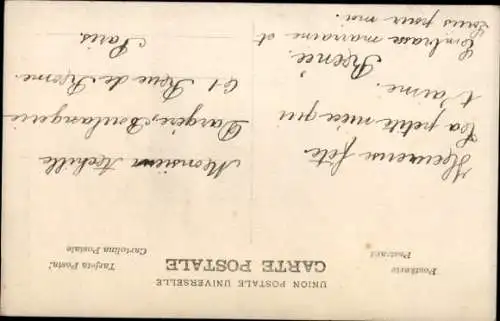 UNION POSTALE UNIVERSELLE
CARTE POSTALE
Postkarte
Postcard
Tarjeta Postal
Cartolina Postale
Heureuse fête
Ta petite nièce qui
t'aime.
Renée.
Embrasse marraine et
Louis pour moi.
Monsieur Achille
Dargère, Boulangerie
61 Rue de Rome.
Paris.